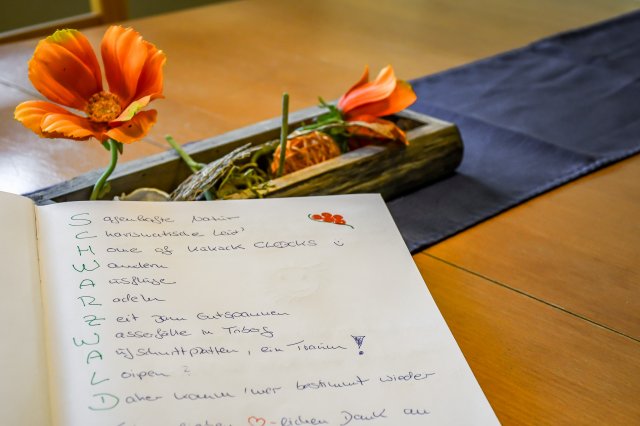 Sagenhafte Natur
Charismatische Leut'
Home of Kukuck CLOCKS
Wandern
Ausflüge
Radeln
Zeit zum Entspannen
Wasserfälle in Triberg
Aufschnittplatten, ein Traum!
Loipen?
Daher komm' wer bestimmt wieder
-lichen Dank an